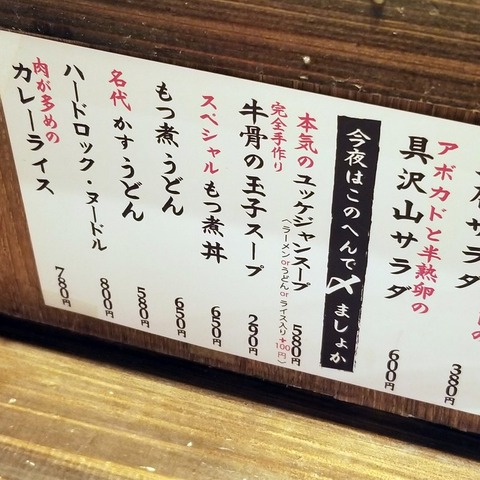 サラダ
380円
アボカドと半熟卵の
具沢山サラダ
600円
今夜はこのへんで〆ましょか
本気のユッケジャンスープ
(ラーメンorうどんorライス入り+100円)
580円
完全手作り
牛骨の玉子スープ
290円
スペシャルもつ煮丼
650円
もつ煮うどん
650円
名代かすうどん
580円
ハードロック・ヌードル
800円
肉が多めの
カレーライス
780円